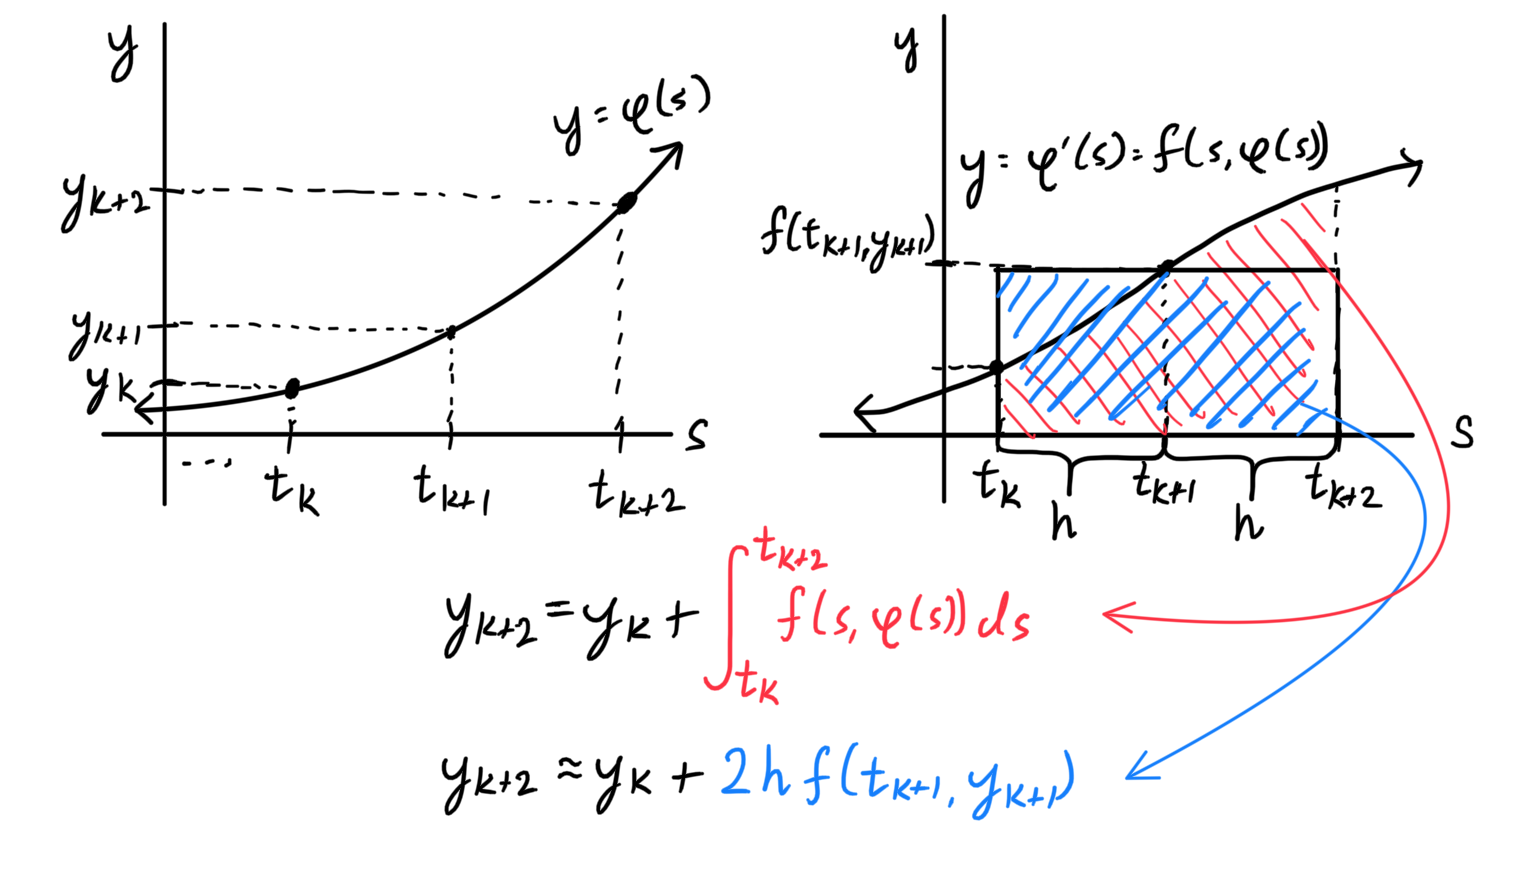 y
y = φ(s)
y_{k+2}
y_{k+1}
y_k
s
....
t_k
t_{k+1}
t_{k+2}
y
y = φ'(s) = f(s, φ(s))
f(t_{k+1}, y_{k+1})
s
t_k
t_{k+1}
t_{k+2}
h
h
y_{k+2} = y_k + ∫_{t_k}^{t_{k+2}} f(s, φ(s)) ds
y_{k+2} ≈ y_k + 2 h f(t_{k+1}, y_{k+1})